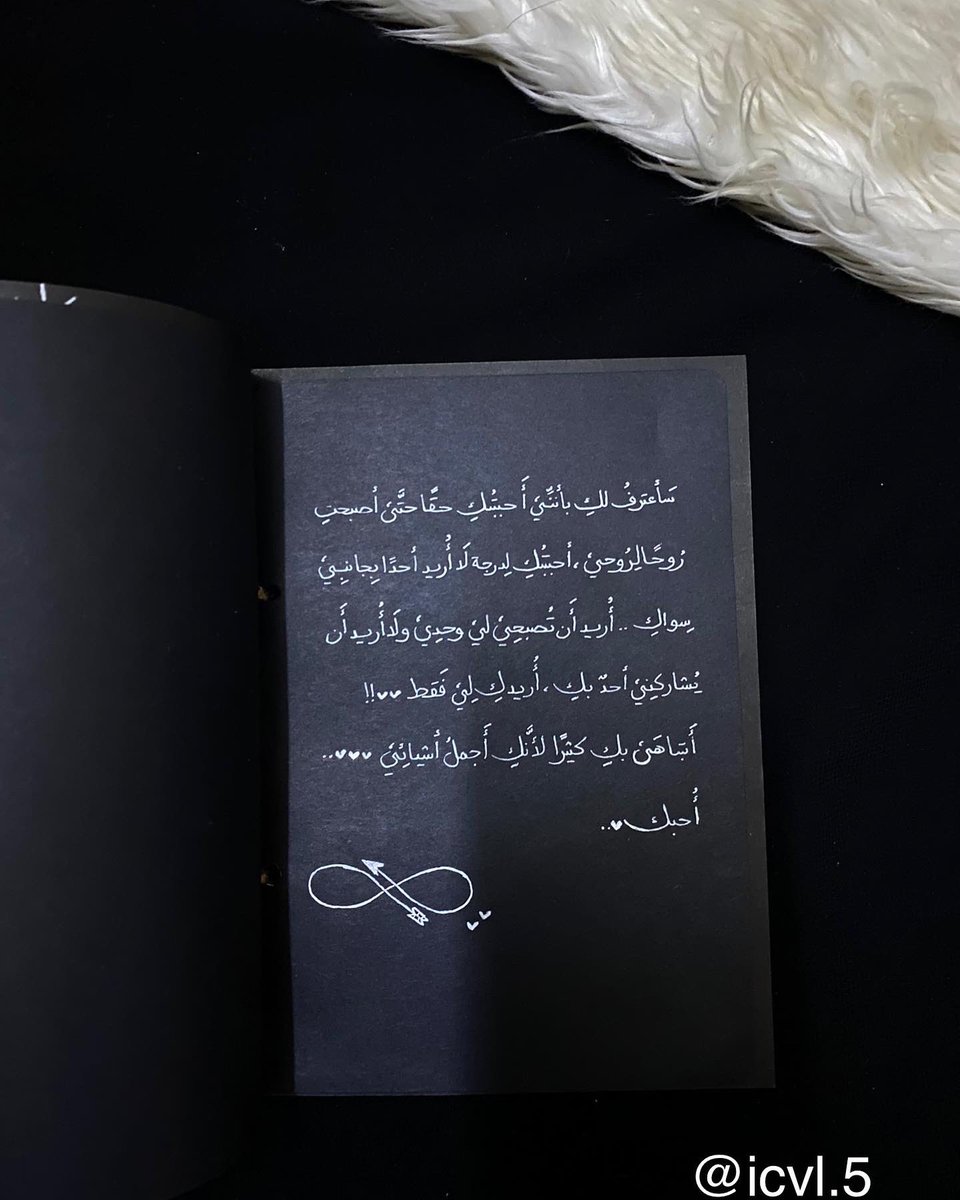 سَأعترفُ لكِ بأنَّنيْ أَحببتُكِ حقًّا حتَّىٰ أصبحتِ
رُوحًا لِرُوحيْ ، أحببتُكِ لِدرجة لَا أُريد أحدًا بِجانبيْ
سِواكِ .. أُريد أَن تُصبحِيْ ليْ وحدِيْ ولَا أُريد أَن
يُشاركنِيْ أحدٌ بكِ ، أُريدكِ لِيْ فَقط ♥♥!!
أَتباهَىٰ بكِ كثيرًا لأنَّكِ أَجملُ أشيائِيْ ♥♥♥..
أُحبك ♥..
@icvl.5